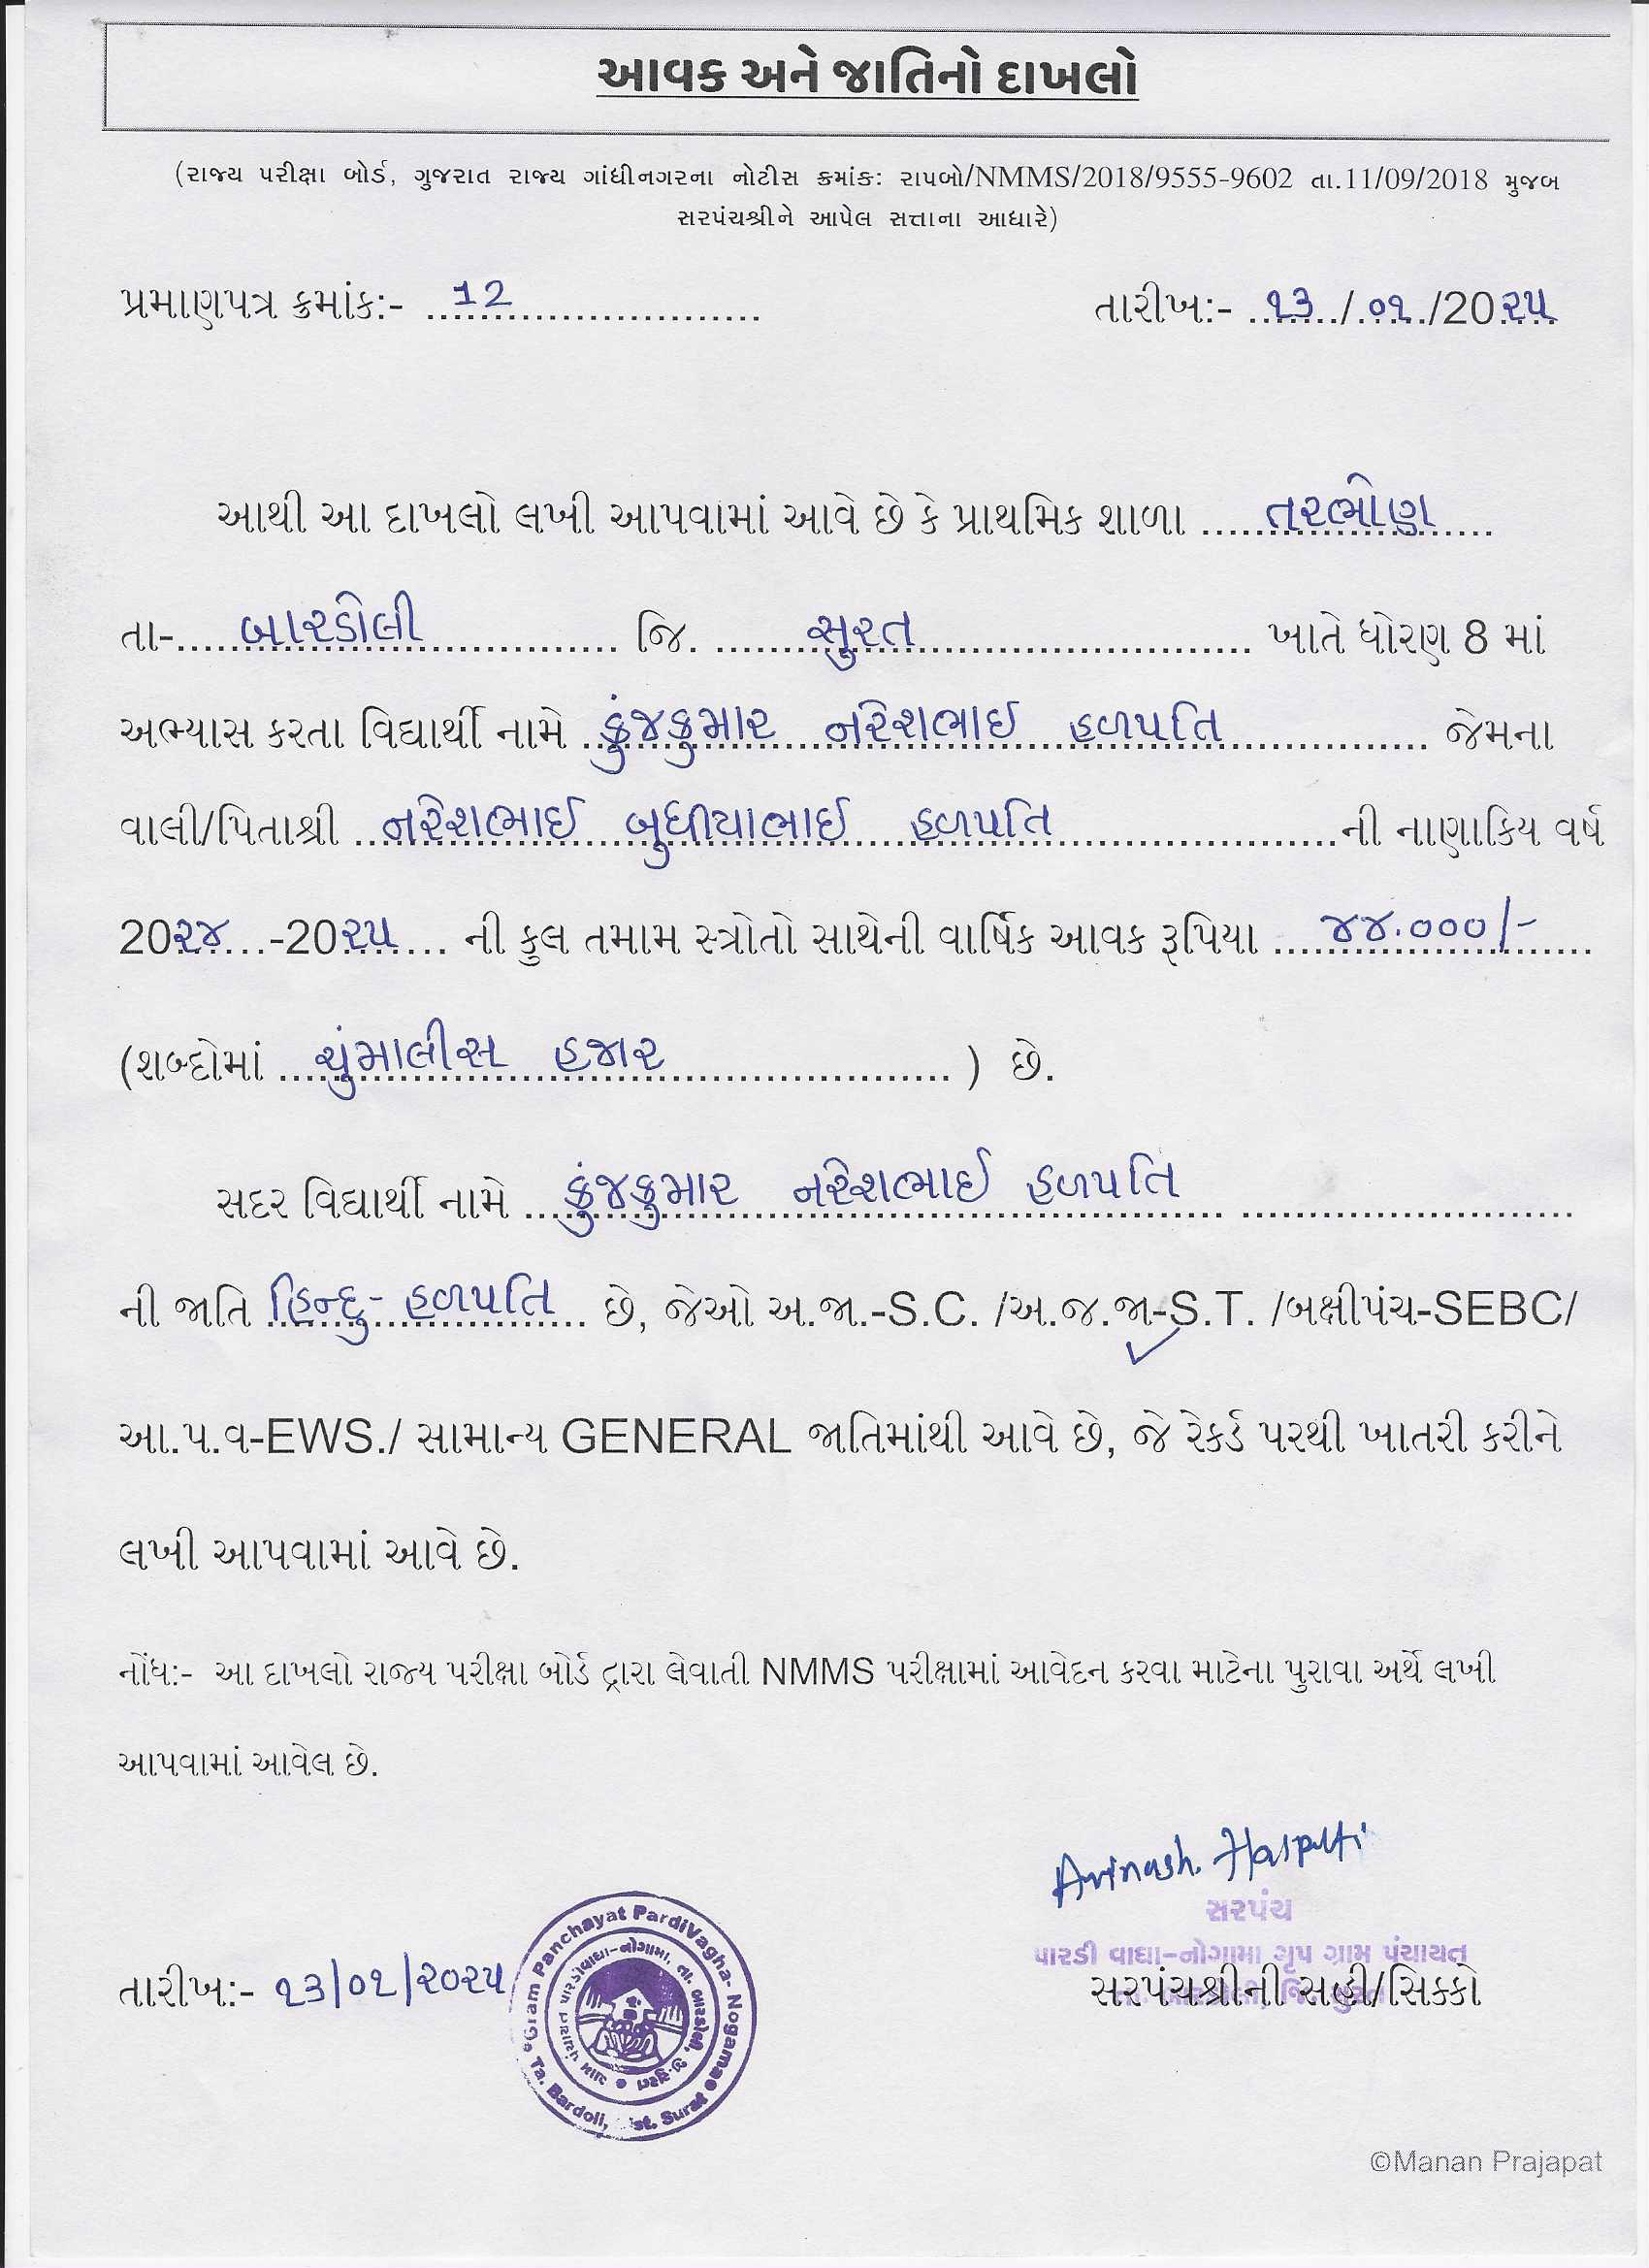 આવક અને જાતિનો દાખલો
(રાજ્ય પરીક્ષા બોર્ડ, ગુજરાત રાજ્ય ગાંધીનગરના નોટીસ ક્રમાંક: રાપબો/NMMS/2018/9555-9602 તા.11/09/2018 મુજબ
સરપંચશ્રીને આપેલ સત્તાના આધારે)
પ્રમાણપત્ર ક્રમાંક:- 12 તારીખ:- ૧૩/૦૧/20૨૫
આથી આ દાખલો લખી આપવામાં આવે છે કે પ્રાથમિક શાળા તરભોણ
તા- બારડોલી જિ. સુરત ખાતે ધોરણ 8 માં
અભ્યાસ કરતા વિદ્યાર્થી નામે કુંજકુમાર નરેશભાઈ હળપતિ જેમના
વાલી/પિતાશ્રી નરેશભાઈ બુધીયાભાઈ હળપતિ ની નાણાકિય વર્ષ
20૨૪-20૨૫ ની કુલ તમામ સ્ત્રોતો સાથેની વાર્ષિક આવક રૂપિયા ૪૪.૦૦૦/-
(શબ્દોમાં ચુંમાલીસ હજાર ) છે.
સદર વિદ્યાર્થી નામે કુંજકુમાર નરેશભાઈ હળપતિ
ની જાતિ હિન્દુ- હળપતિ છે, જેઓ અ.જા.-S.C. /અ.જ.જા-S.T. /બક્ષીપંચ-SEBC/
આ.પ.વ-EWS./ સામાન્ય GENERAL જાતિમાંથી આવે છે, જે રેકર્ડ પરથી ખાતરી કરીને
લખી આપવામાં આવે છે.
નોંધ:- આ દાખલો રાજ્ય પરીક્ષા બોર્ડ દ્વારા લેવાતી NMMS પરીક્ષામાં આવેદન કરવા માટેના પુરાવા અર્થે લખી
આપવામાં આવેલ છે.
Avinash. Halpati
સરપંચ
પારડી વાઘા-નોગામા ગૃપ ગ્રામ પંચાયત
તારીખ:- ૧૩/૦૧/૨૦૨૫ સરપંચશ્રીની સહી/સિક્કો
Gram Panchayat PardiVagha- Nogamae
Ta. Bardoli, st. Surat
©Manan Prajapat